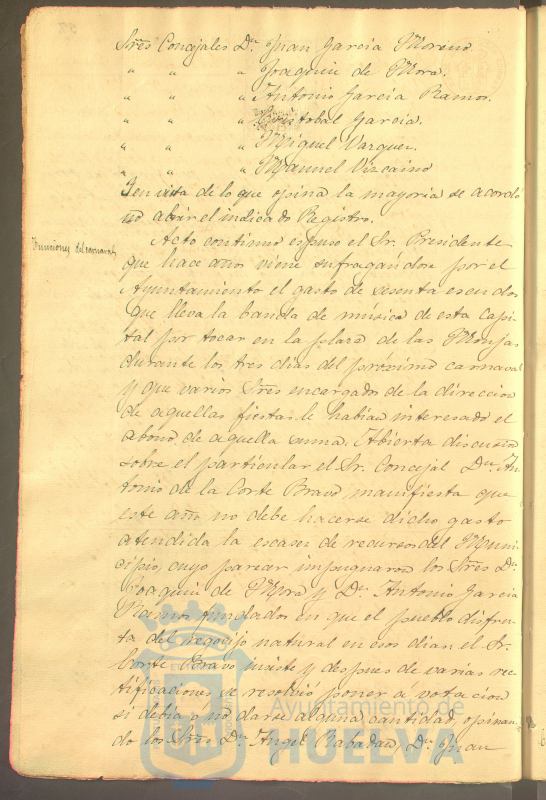 Sres Concejales Dn. Juan Garcia Moreno
" " " Joaquin de Mora.
" " " Antonio Garcia Ramos.
" " " Cristobal Garcia.
" " " Miguel Vazquez.
" " " Manuel Vizcaino
I en vista de lo que opina la mayoria se acordó
no abrir el indicado Registro.
Funciones del carnaval
Acto continuo espuso el Sr. Presidente
que hace años viene sufragandose por el
Ayuntamiento el gasto de sesenta escudos
que lleva la banda de música de esta capi
tal por tocar en la plaza de las Monjas
durante los tres dias del próximo carnaval
y que varios Sres encargados de la direccion
de aquellas fiestas le habian interesado el
abono de aquella suma. Abierta discusion
sobre el particular el Sr. Concejal Dn. An
tonio de la Corte Bravo, manifiesta que
este año no debe hacerse dicho gasto
atendida la escases de recursos del Muni
cipio, cuyo parecer impugnaron los Sres Dn.
Joaquin de Mora y Dn. Antonio Garcia
Ramos fundados en que el pueblo disfru
ta del regocijo natural en esos dias. el Sr.
Corte Bravo insiste y despues de varias rec
tificaciones se resolvió poner a votacion
si debia o no darse alguna cantidad, opinan
do los Sres Dn. Angel Rabadan, Dn. Juan
Ayuntamiento de
HUELVA